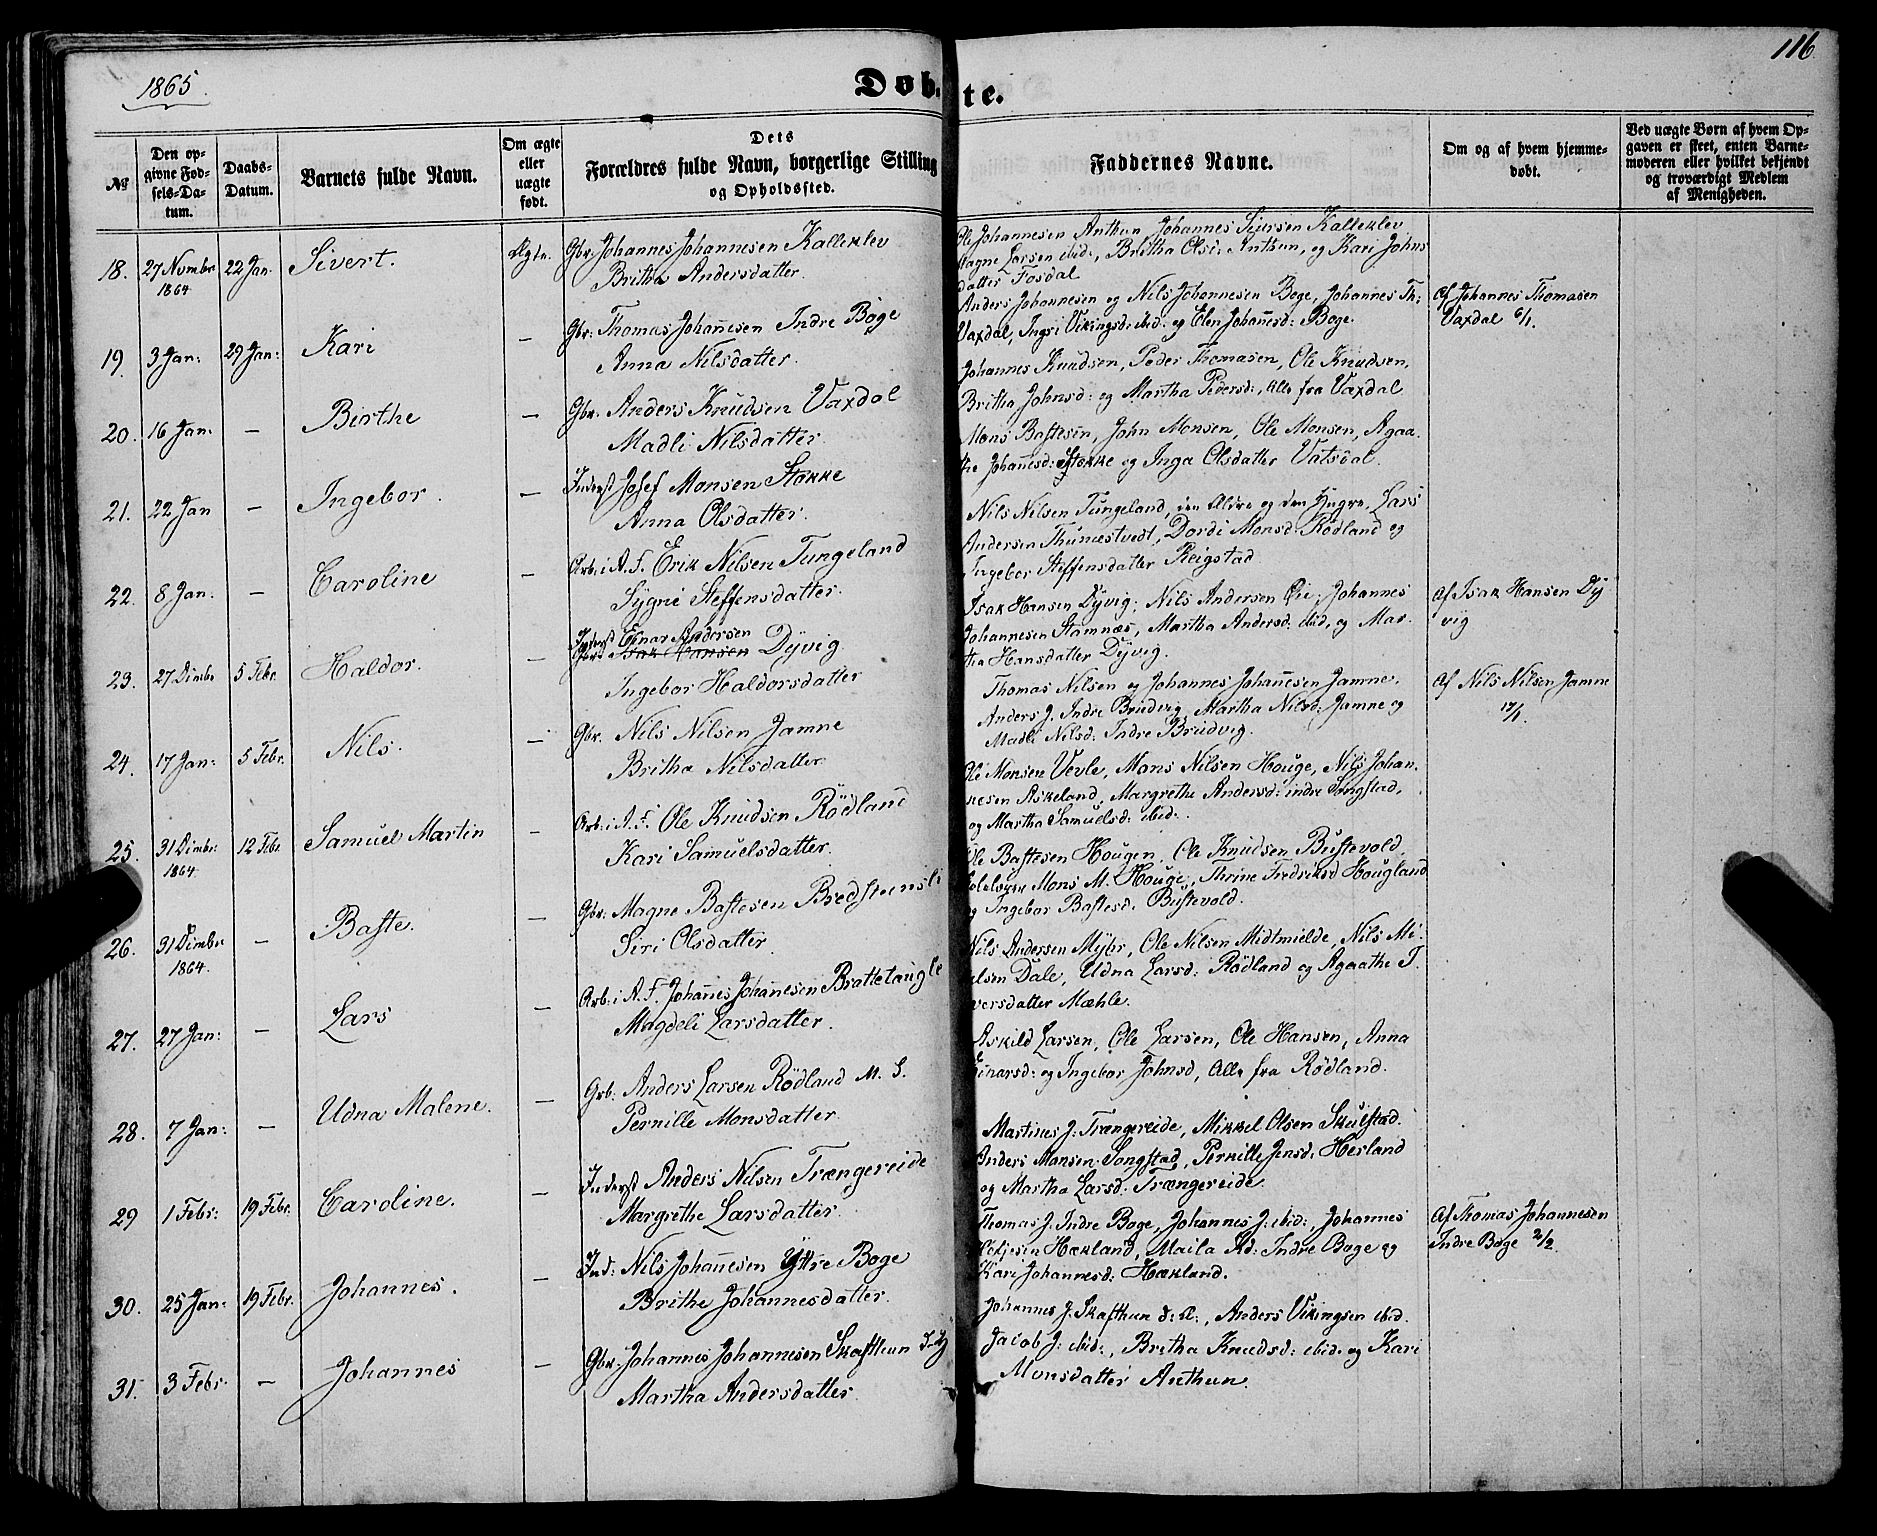 1865.
116.
Døbte.
No
Den opgivne Fødsels-Datum.
Daabs-Datum.
Barnets fulde Navn.
Om ægte eller uægte født.
Dets Forældres fulde Navn, borgerlige Stilling og Opholdssted.
Faddernes Navne.
Om og af hvem hjemmedøbt.
Ved uægte Børn af hvem Opgaven er skeet, enten Barnemoderen eller hvilket bekjendt og troværdigt Medlem af Menigheden.
18. 27 Novmbr 1864 22 Jan. Sivert. Ægte. Gbr: Johannes Johannesen Kalleklev
Britha Andersdatter.
Ole Johannesen Anthun, Johannes Siursen Kalleklev
Magne Larsen ibid:, Britha Olsd: Anthun, og Kari Johns
datter Fosdal
19. 3 Jan: 29 Jan: Kari — Gbr: Thomas Johannesen Indre Boge
Anna Nilsdatter.
Anders Johannesen og Nils Johannesen Boge, Johannes Th:
Vaxdal, Ingri Vikingsd: ibid: og Elen Johannesd: Boge.
Af Johannes Thomasen
Vaxdal 6/1.
20. 16 Jan: — Birthe — Gbr: Anders Knudsen Vaxdal
Madli Nilsdatter.
Johannes Knudsen, Peder Thomasen, Ole Knudsen,
Britha Johnsd: og Martha Pedersd:, Alle fra Vaxdal
21. 22 Jan — Ingebor. — Inderst Josef Monsen Stokke
Anna Olsdatter.
Mons Bastesen, John Monsen, Ole Monsen, Agaa-
the Johannesd: Stokke og Inga Olsdatter Vatsdal.
22. 8 Jan: — Caroline — Arb: i A. F. Erik Nilsen Tungeland
Sygni Steffensdatter.
Nils Nilsen Tungeland, den Ældre og den Yngre, Lars
Andersen Thunestvedt, Dordi Monsd: Rødland og
Ingebor Steffensdatter Reigstad
23. 27 Dimbr 5 Febr. Haldor. — Inderst Einar Andersen
Isak Hansen Dyvig
Ingebor Haldorsdatter
Isak Hansen Dyvig, Nils Andersen Øie, Johannes
Johannesen Stamnæs, Martha Andersd: ibid, og Mar-
tha Hansdatter Dyvig.
Af Isak Hansen Dy
vig
24. 17 Jan: 5 Febr. Nils. — Gbr. Nils Nilsen Jamne
Britha Nilsdatter.
Thomas Nilsen og Johannes Johannesen Jamne,
Anders J. Indre Brudvig, Martha Nilsd: Jamne og
Madli Nilsd: Indre Brudvig.
Af Nils Nilsen Jamne
17/1.
25. 31 Dimbr: 1864 12 Febr Samuel Martin — Arb: i A. F. Ole Knudsen Rødland
Kari Samuelsdatter.
Ole Monsen Vevle, Mons Nilsen Houge, Nils Johan-
nesen Askeland, Margrethe Andersd: indre Songstad,
og Martha Samuelsd: ibid:.
26. 31 Dimbr 1864. — Baste. — Gbr: Magne Bastesen Bredsteensli
Siri Olsdatter.
Ole Bastesen Hougen, Ole Knudsen Bustevold,
Mons M. Houge, Thrine Fredriksd Hougland
og Ingebor Bastesd: Bustevold.
27. 27 Jan: — Lars — Arb: i A. F. Johannes Johannesen Brattetaugle
Magdeli Larsdatter.
Nils Andersen Myhr, Ole Nilsen Midtmielde, Nils Ni-
elsen Dale, Udna Larsd: Rødland og Agaathe I
versdatter Mæhle.
28. 7 Jan: — Udna Malene. — Grb: Anders Larsen Rødland M. S.
Pernille Monsdatter.
Askild Larsen, Ole Larsen, Ole Hansen, Anna
Einarsd: og Ingebor Johnsd, Alle fra Rødland.
29 1 Febr: 19 Febr. Caroline. — Inderst Anders Nilsen Trængereide
Margrethe Larsdatter.
Martines J: Trængereide, Mikkel Olsen Skulstad.
Anders Monsen Songstad, Pernille Jensd: Herland
og Martha Larsd: Trængereide.
30. 25 Jan: 19 Febr. Johannes. — Ind: Nils Johannesen Yttre Boge
Brithe Johannesdatter.
Thomas J. Indre Boge, Johannes J: ibid:, Johannes
Hækland, Maila Kd: Indre Boge og
Kari Johannesd: Hækland.
Af Thomas Johannesen
Indre Boge 2/2.
31. 3 Febr. — Johannes — Gbr: Johannes Johannesen Skafthun
Martha Andersdatter.
Johannes J. Skafthun d: æ:, Anders Vikingsen ibid.
Jacob J: ibid:, Britha Knudsd: ibid: og Kari
Monsdatter Anthun.